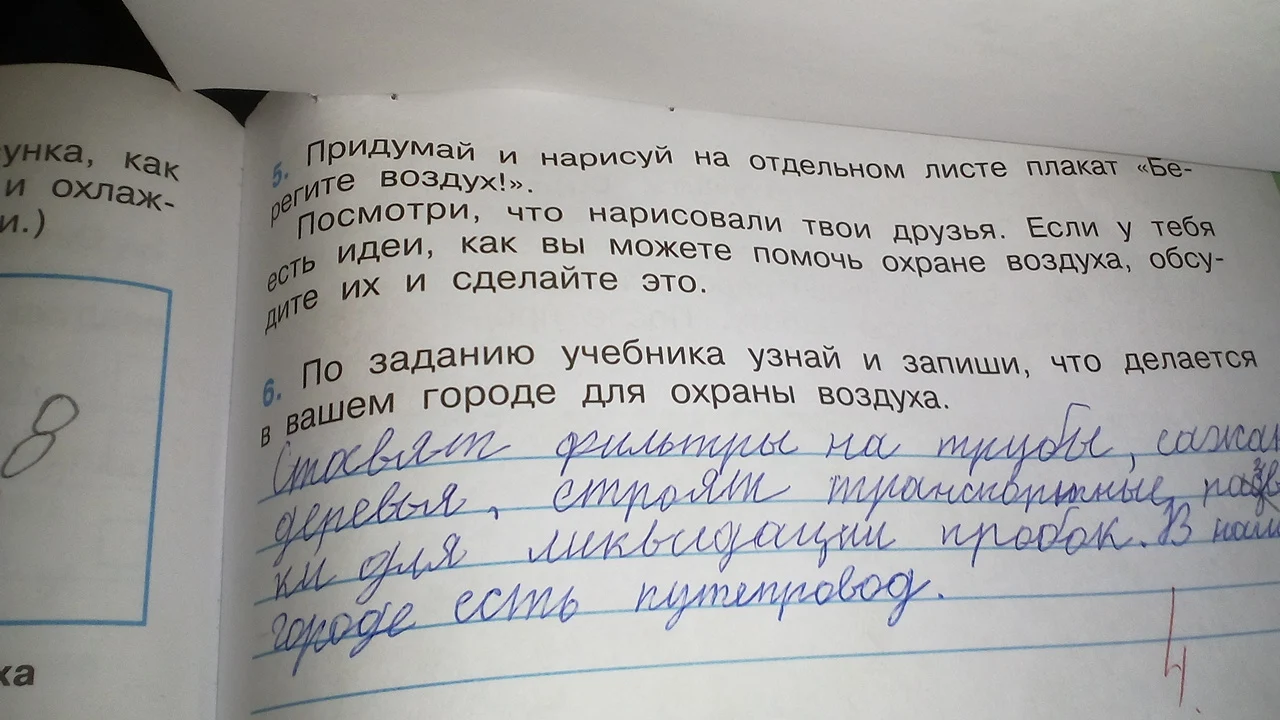 унка, как
и охлаж-
и.)
8
ка
5. Придумай и нарисуй на отдельном листе плакат «Бе-
регите воздух!».
Посмотри, что нарисовали твои друзья. Если у тебя
есть идеи, как вы можете помочь охране воздуха, обсу-
дите их и сделайте это.
6. По заданию учебника узнай и запиши, что делается
в вашем городе для охраны воздуха.
Ставят фильтры на трубы, сажа
деревья, строят транспортные
ки для ликвидации пробок. В на
городе есть путепровод.
4